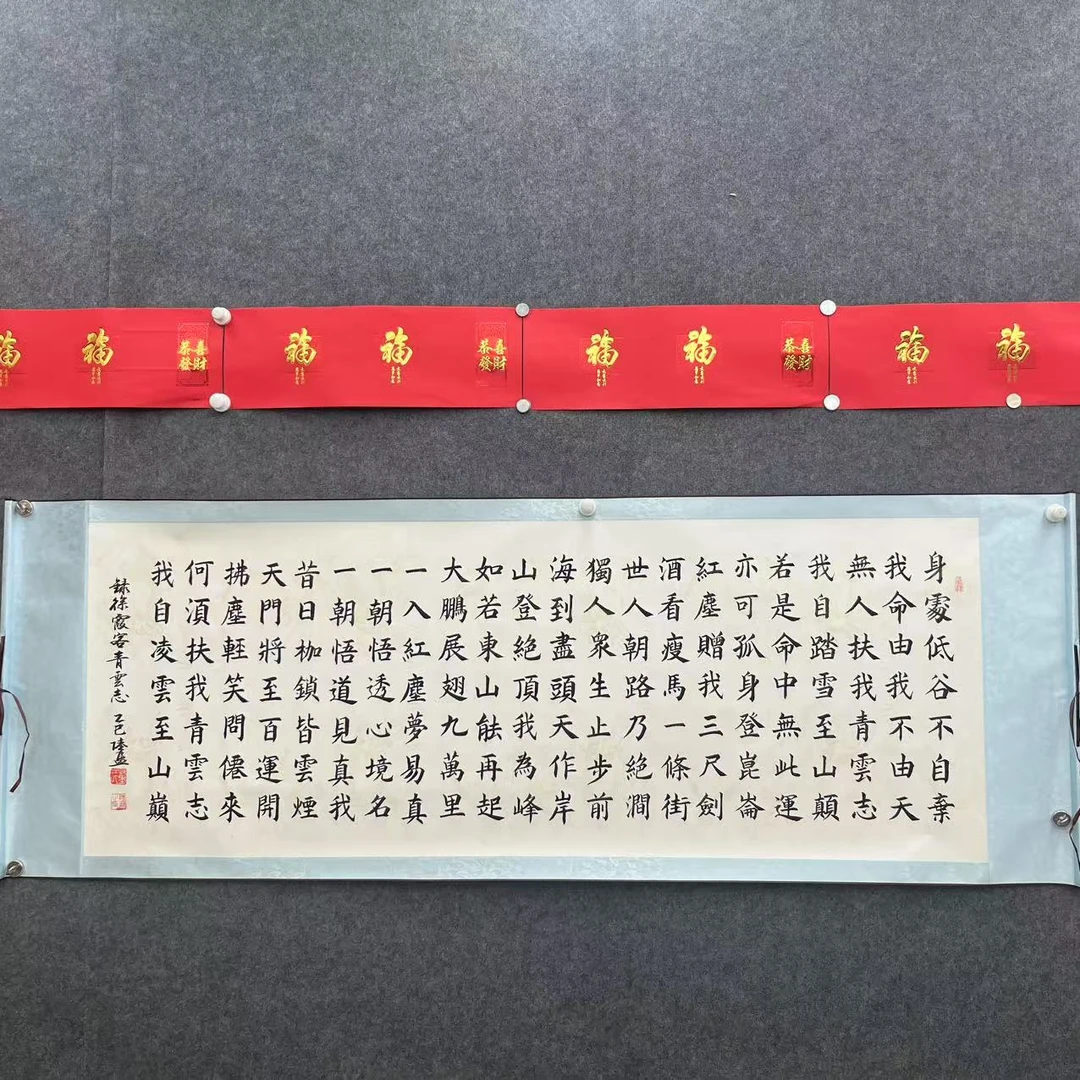 福
福
恭喜
發財
福
福
恭喜
發財
福
福
恭喜
發財
福
福
身處低谷不自棄
我命由我不由天
無人扶我青雲志
我自踏雪至山顛
若是命中無此運
亦可孤身登崑崙
紅塵贈我三尺劍
酒看瘦馬一條街
世人朝路乃絕澗
獨人衆生止步前
海到盡頭天作岸
山登絕頂我為峰
如若東山能再起
大鵬展翅九萬里
一入紅塵夢易真
一朝悟透心境名
一朝悟道見真我
昔日枷鎖皆雲煙
天門將至百運開
拂塵輕笑問僊來
何須扶我青雲志
我自凌雲至山巔
錄徐霞客青雲志 乙巳